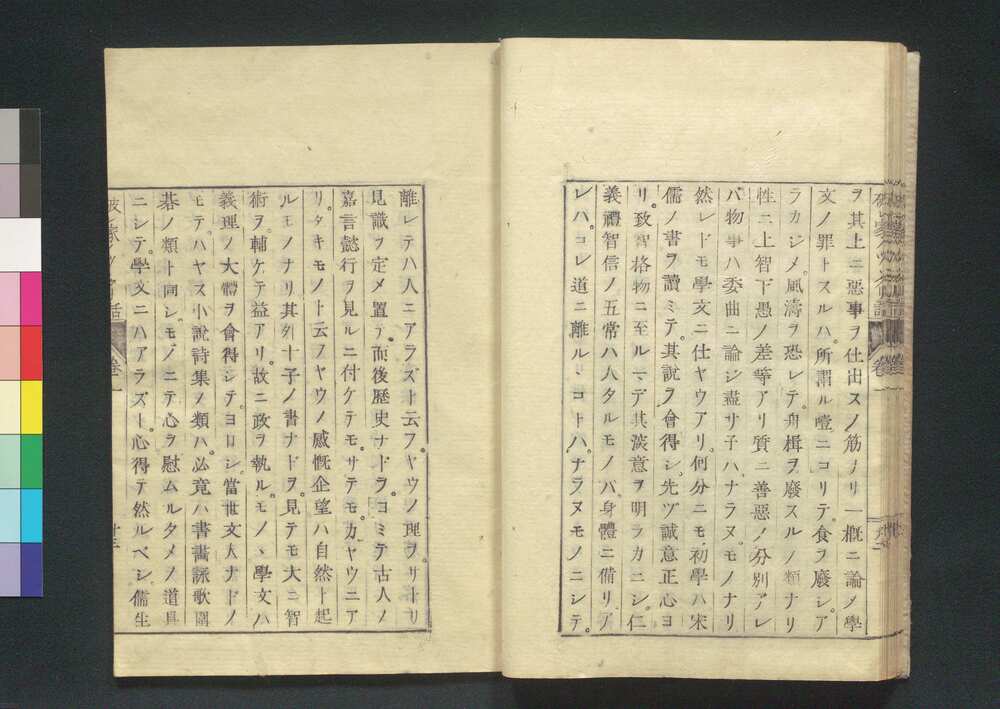 ヲ其上ニ惡事ヲ仕出スノ筋ナリ一概ニ論メ學
文ノ罪トスルハ。所謂ル噎ニコリテ食ヲ廢シ。ア
ラカジメ。風濤ヲ恐レテ。舟楫ヲ廢スルノ類ナリ
性ニ上智下愚ノ差等アリ質ニ善惡ノ分別アレ
バ物事ハ委曲ニ論ジ盡サ子ハ。ナラヌ。モノナリ
然レドモ學文ニ仕ヤウアリ。何分ニモ初學ハ宋
儒ノ書ヲ讀ミテ。其說ヲ會得シ。先ヅ誠意正心ヨ
リ。致智格物ニ至ルマデ其深意ヲ明ラカニシ。仁
義禮智信ノ五常ハ人タルモノヽ身體ニ備リテ
レハ。コレ道ニ離ルヽコトハ。ナラヌモノニシテ。
離レテハ人ニアラズト云フ。ヤウノ理ヲ。サトリ
見識ヲ定メ置テ。而後歷史ナドヲ。ヨミテ古人ノ
嘉言懿行ヲ見ルニ付ケテモ。サテモ。カヤウニア
リ。タキモノト云フヤウノ感慨企望ハ自然ト起
ルモノナリ其外十子ノ書ナドヲ。見テモ大ニ智
術ヲ。輔ケテ益アリ。故ニ政ヲ執ル。モノヽ學文ハ
義理ノ大體ヲ會得シテ。ヨロシ。當世文人ナドノ
モテ。ハヤス小說詩集ノ類ハ。必竟ハ書畫詠歌圍
碁ノ類ト同シ。モノニテ心ヲ慰ムルタメノ道具
ニシテ。學文ニハアラズト。心得テ然ルベシ。儒生
卷一
十三